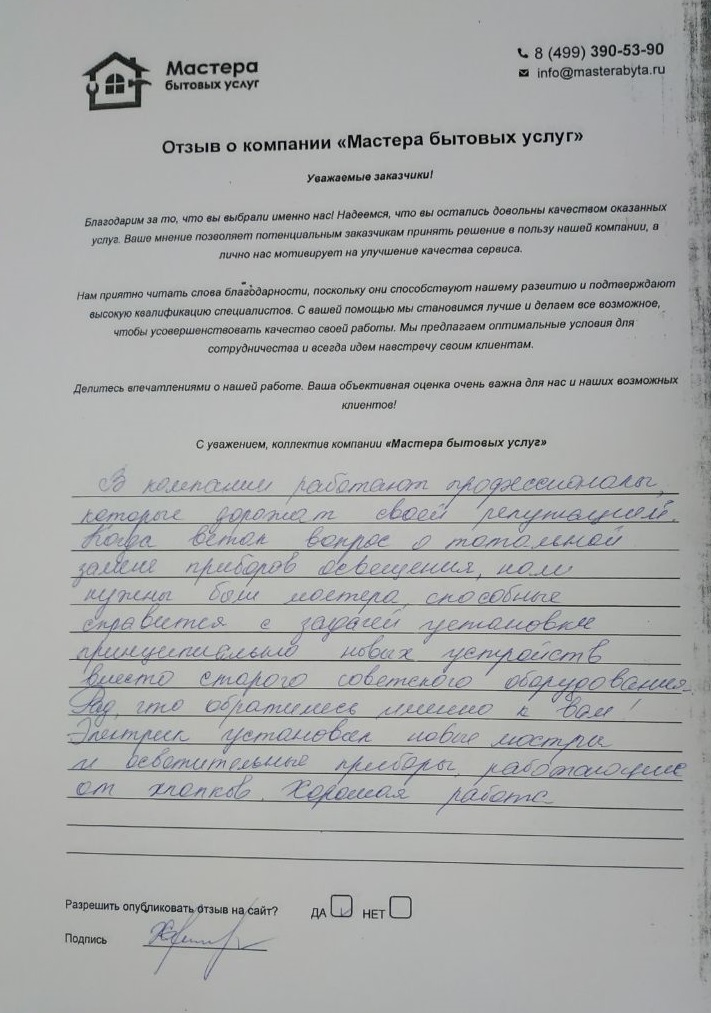 Мастера
бытовых услуг
8 (499) 390-53-90
info@masterabyta.ru
Отзыв о компании «Мастера бытовых услуг»
Уважаемые заказчики!
Благодарим за то, что вы выбрали именно нас! Надеемся, что вы остались довольны качеством оказанных
услуг. Ваше мнение позволяет потенциальным заказчикам принять решение в пользу нашей компании, а
лично нас мотивирует на улучшение качества сервиса.
Нам приятно читать слова благодарности, поскольку они способствуют нашему развитию и подтверждают
высокую квалификацию специалистов. С вашей помощью мы становимся лучше и делаем все возможное,
чтобы усовершенствовать качество своей работы. Мы предлагаем оптимальные условия для
сотрудничества и всегда идем навстречу своим клиентам.
Делитесь впечатлениями о нашей работе. Ваша объективная оценка очень важна для нас и наших возможных
клиентов!
С уважением, коллектив компании «Мастера бытовых услуг»
В компании работают профессионалы,
которые дорожат своей репутацией.
Когда встал вопрос о тотальной
замене приборов освещения, нам
нужны были мастера, способные
справится с задачей установки
принципиально новых устройств
вместо старого советского оборудования.
Рад, что обратились именно к вам!
Электрик установил новые люстры
и осветительные приборы, работающие
от хлопков. Хорошая работа
Разрешить опубликовать отзыв на сайт? ДА НЕТ
Подпись